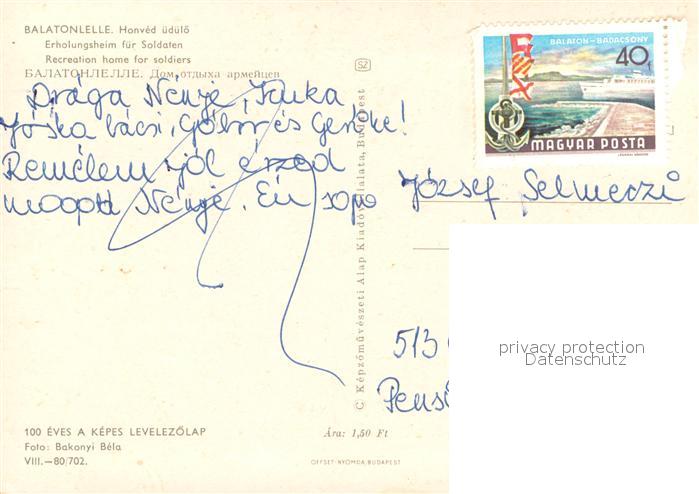 BALATONLELLE. Honvéd üdülő
Erholungsheim für Soldaten
Recreation home for soldiers
БАЛАТОНЛЕЛЛЕ. Дом отдыха армейцев
SZ
BALATON-BADACSONY
40f
MAGYAR POSTA
Drága Nénje, Jutka,
Jóska bácsi, Gábor és
Remélem jól érzed
magad Nénje. Én
József Selmeczi
513
© Képzőművészeti Alap Kiadóvállalata, Budapest
privacy protection
Datenschutz
100 ÉVES A KÉPES LEVELEZŐLAP
Foto: Bakonyi Béla
VIII.—80/702.
Ára: 1,50 Ft
OFFSET-NYOMDA, BUDAPEST